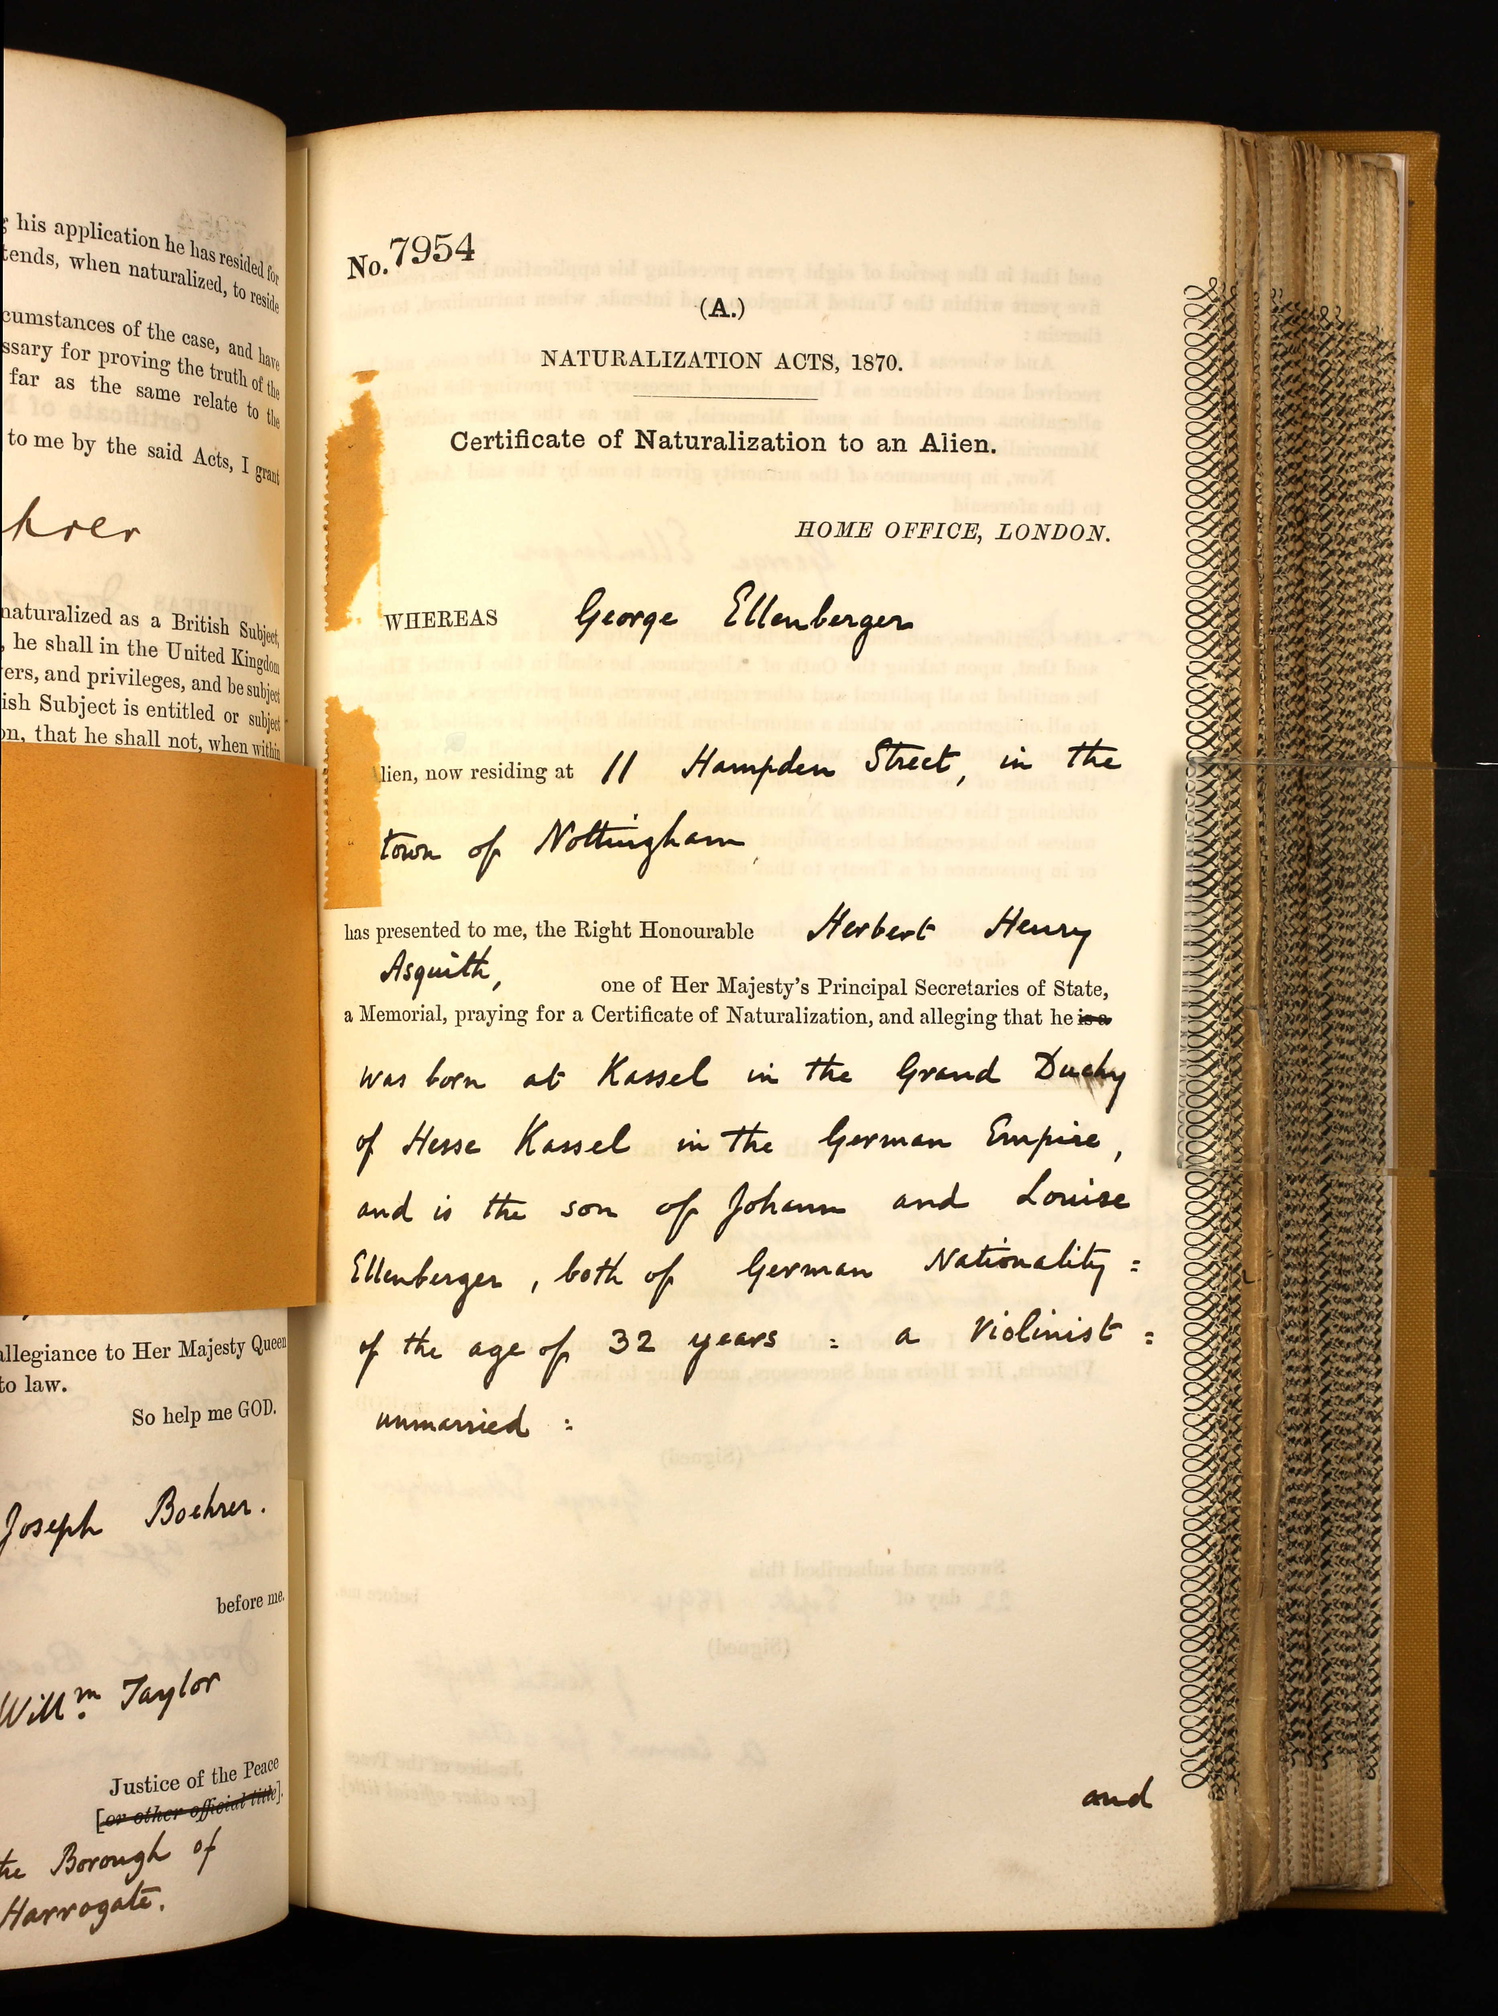 his application he has resided for
tends, when naturalized, to reside
cumstances of the case, and have
ssary for proving the truth of the
far as the same relate to the
to me by the said Acts, I grant
hrer
naturalized as a British Subject,
, he shall in the United Kingdom
ers, and privileges, and be subject
ish Subject is entitled or subject
on, that he shall not, when within
allegiance to Her Majesty Queen
to law.
So help me GOD.
Joseph Boehrer.
before me.
Willm. Taylor
Justice of the Peace
[or other official title].
the Borough of
Harrogate.
No. 7954
(A.)
NATURALIZATION ACTS, 1870.
Certificate of Naturalization to an Alien.
HOME OFFICE, LONDON.
WHEREAS George Ellenberger
lien, now residing at 11 Hampden Street, in the
town of Nottingham,
has presented to me, the Right Honourable Herbert Henry
Asquith, one of Her Majesty's Principal Secretaries of State,
a Memorial, praying for a Certificate of Naturalization, and alleging that he is a
was born at Kassel in the Grand Duchy
of Hesse Kassel in the German Empire,
and is the son of Johann and Louise
Ellenberger, both of German Nationality =
of the age of 32 years = a Violinist =
unmarried =
and